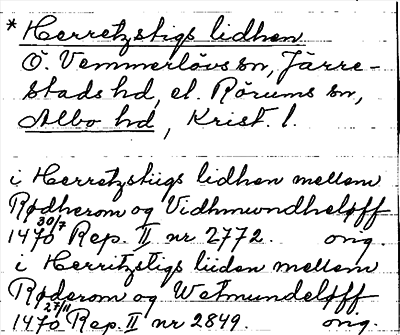 * Herretzstigs lidhen
Ö. Vemmerlövs sn, Järre-
stads hd, el. Rörums sn,
Albo hd, Krist. l.
i Herretzstiigs lidhen mellem
Rødherom og Vidhmwndheløff
30/7 1470 Rep. II nr 2772. orig.
i Herritzstigs liiden mellem
Røderom og Wetmundeløff
27/11 1470 Rep. II nr 2849. orig.